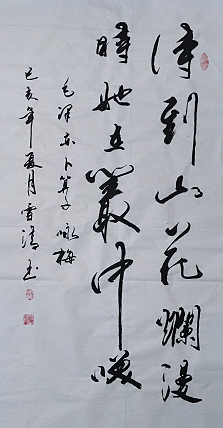 待到山花爛漫
時她在叢中笑
毛泽东卜算子咏梅
己亥年夏月雪清书